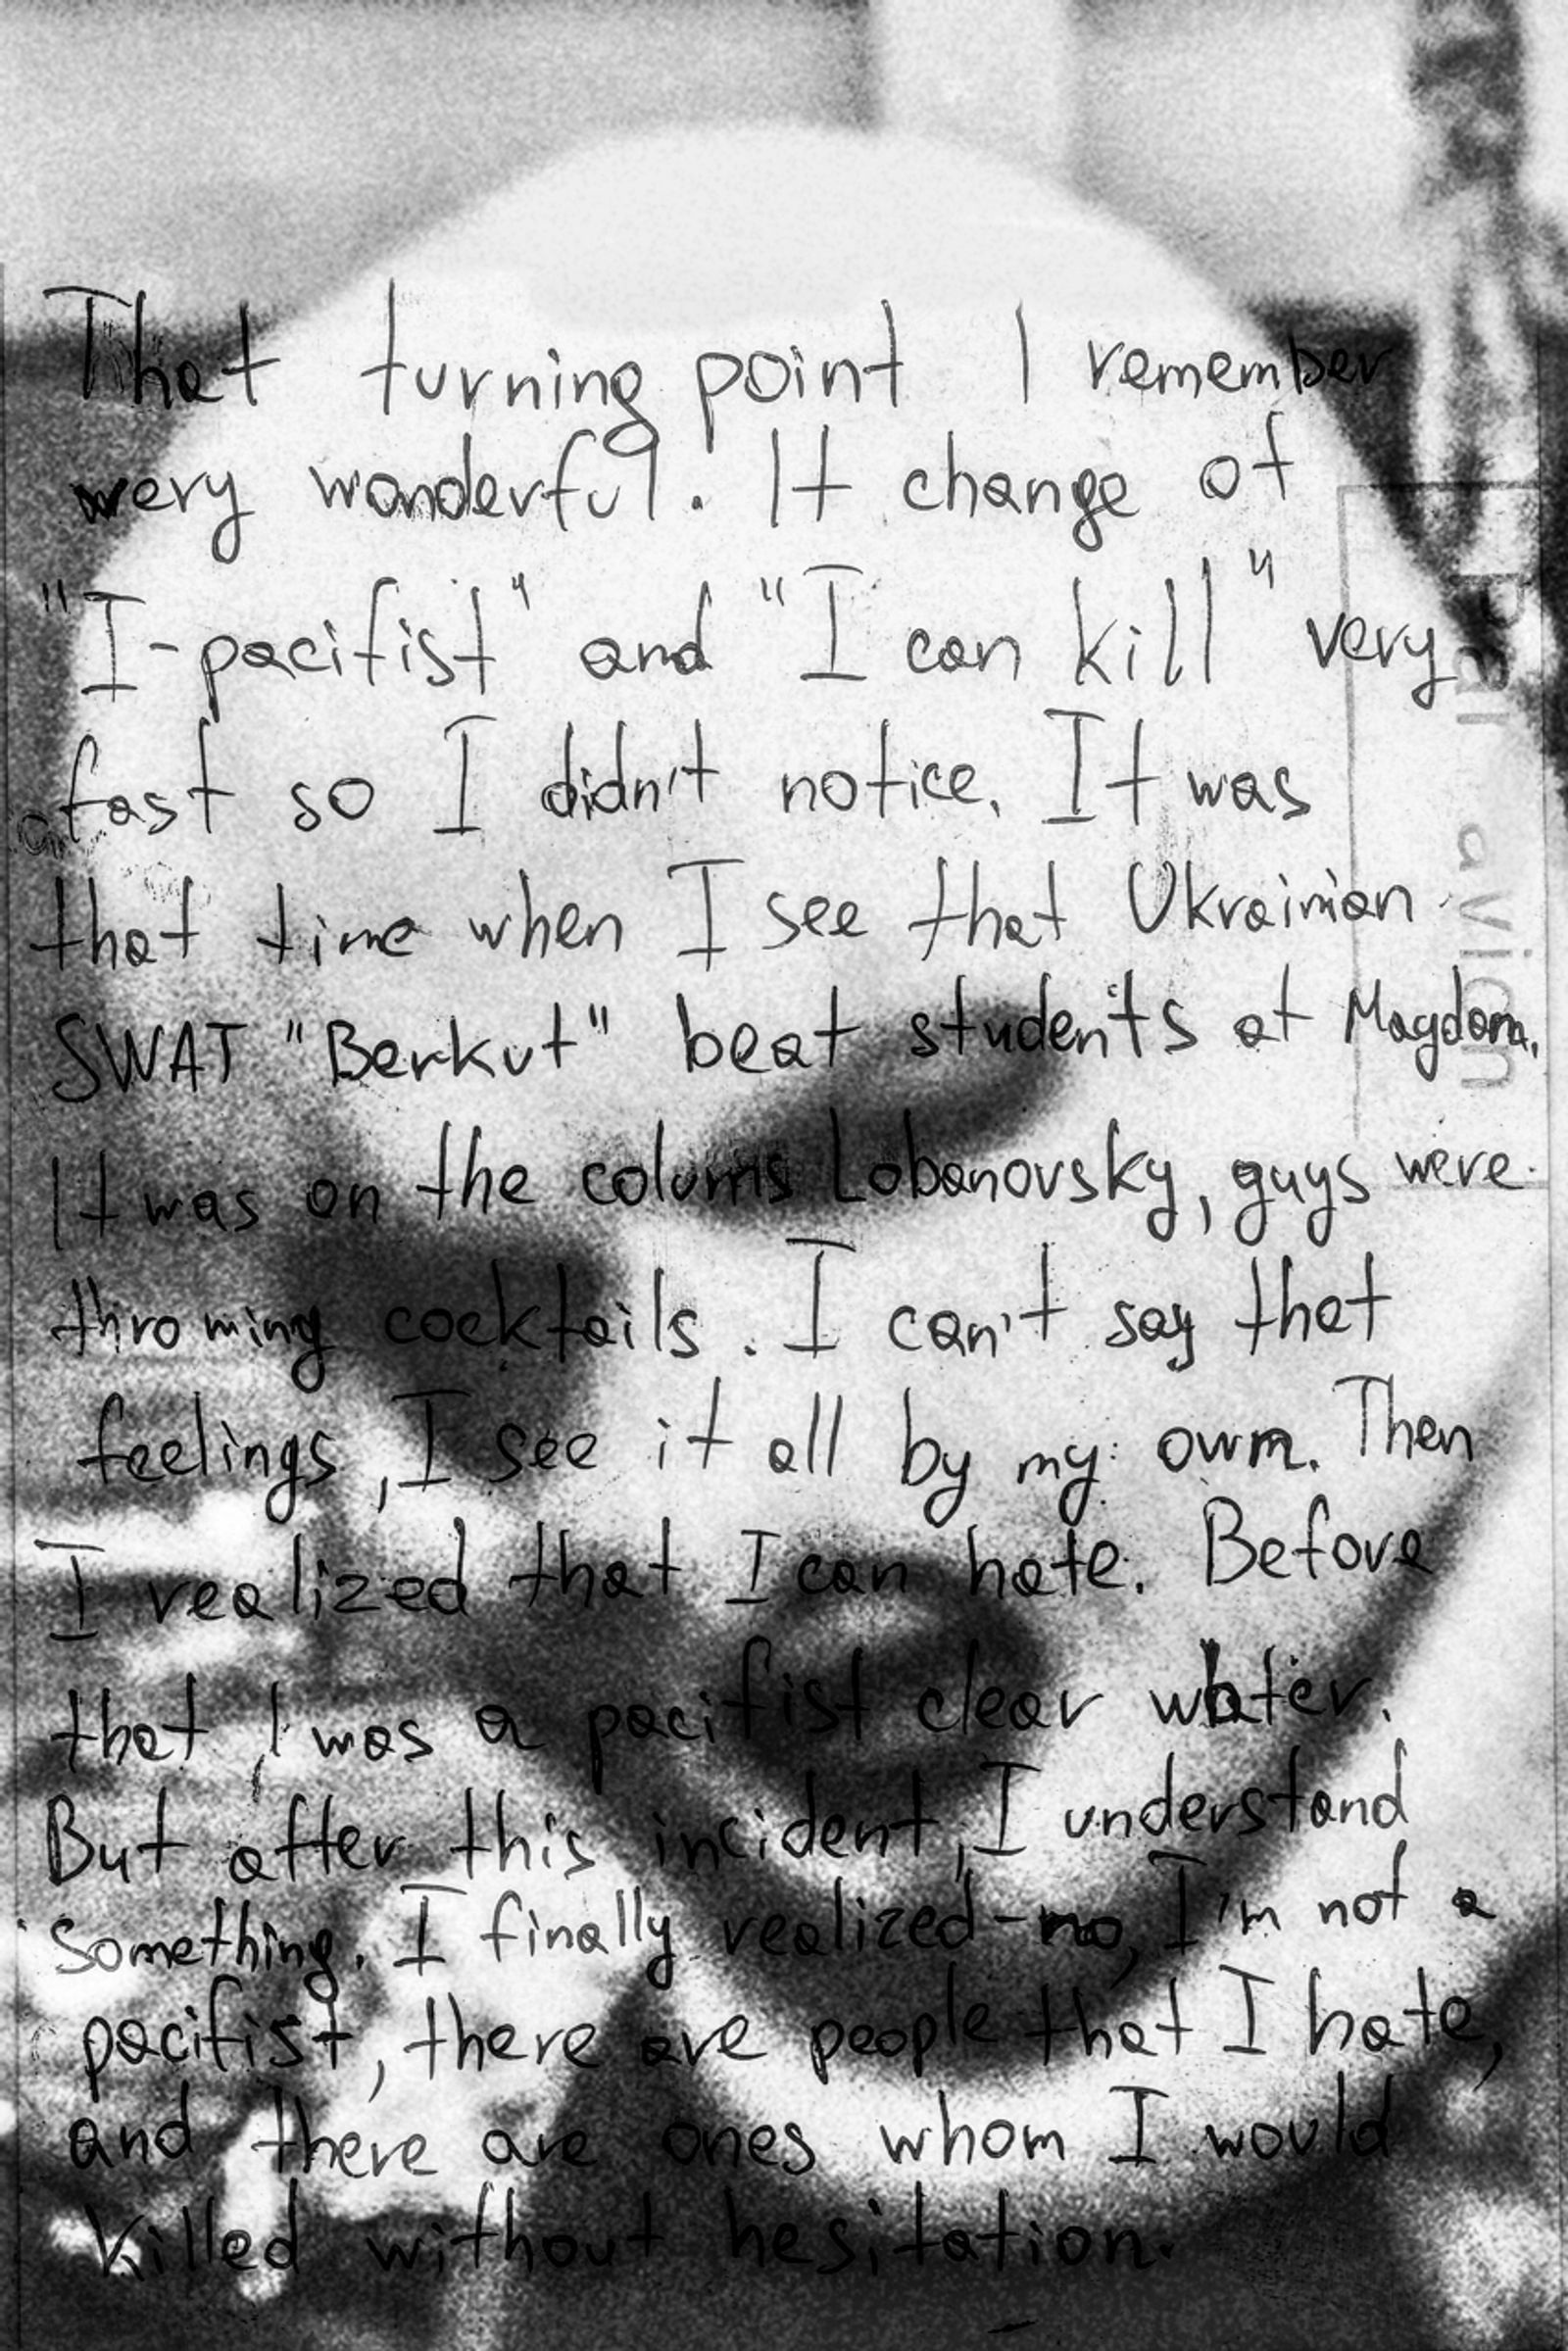 That turning point I remember
wery wonderful. It change of
"I-pacifist" and "I can kill" very
fast so I didn't notice. It was
that time when I see that Ukrainian
SWAT "Berkut" beat students at Maydan.
It was on the colums Lobanovsky, guys were
throwing cocktails. I can't say that
feelings, I see it all by my own. Then
I realized that I can hate. Before
that I was a pacifist clear water.
But after this incident, I understand
something. I finally realized - no, I'm not a
pacifist, there are people that I hate,
and there are ones whom I would
killed without hesitation.
Par avion